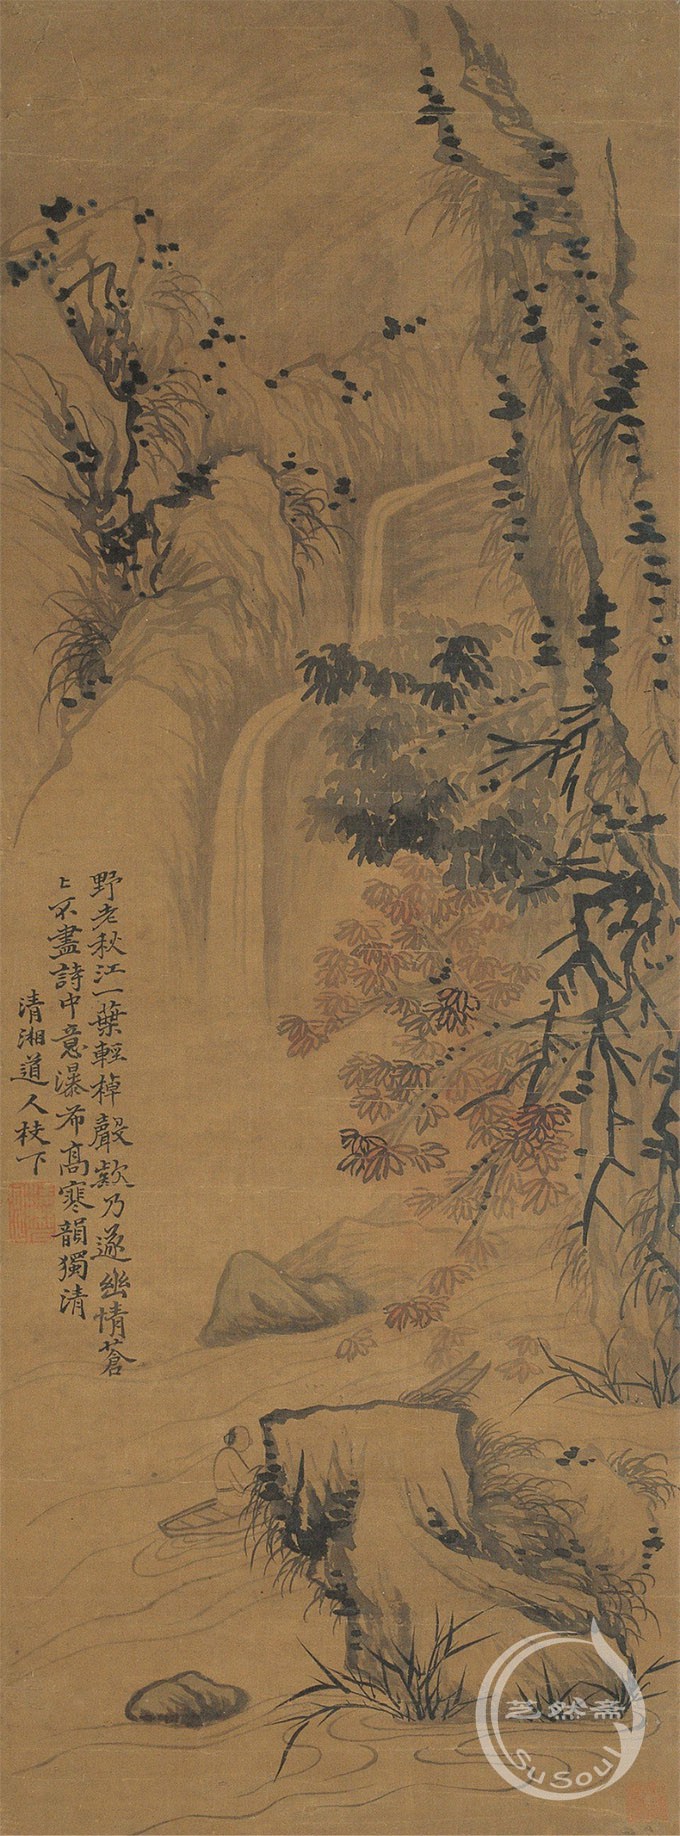 野老秋江一葉輕棹聲欵乃遂幽情蒼
〻不盡詩中意瀑布高寒韻獨清
清湘道人枝下
芝然斋
SuSoul